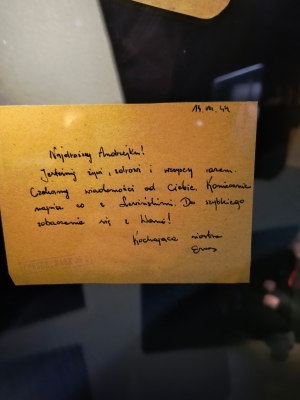 Najdroższy Andrzejku!
Jesteśmy żywi, zdrowi i wszyscy razem.
Czekamy wiadomości od Ciebie. Koniecznie
napisz co z. Do szybkiego
zobaczenia się z Wami!
Kochająca siostra